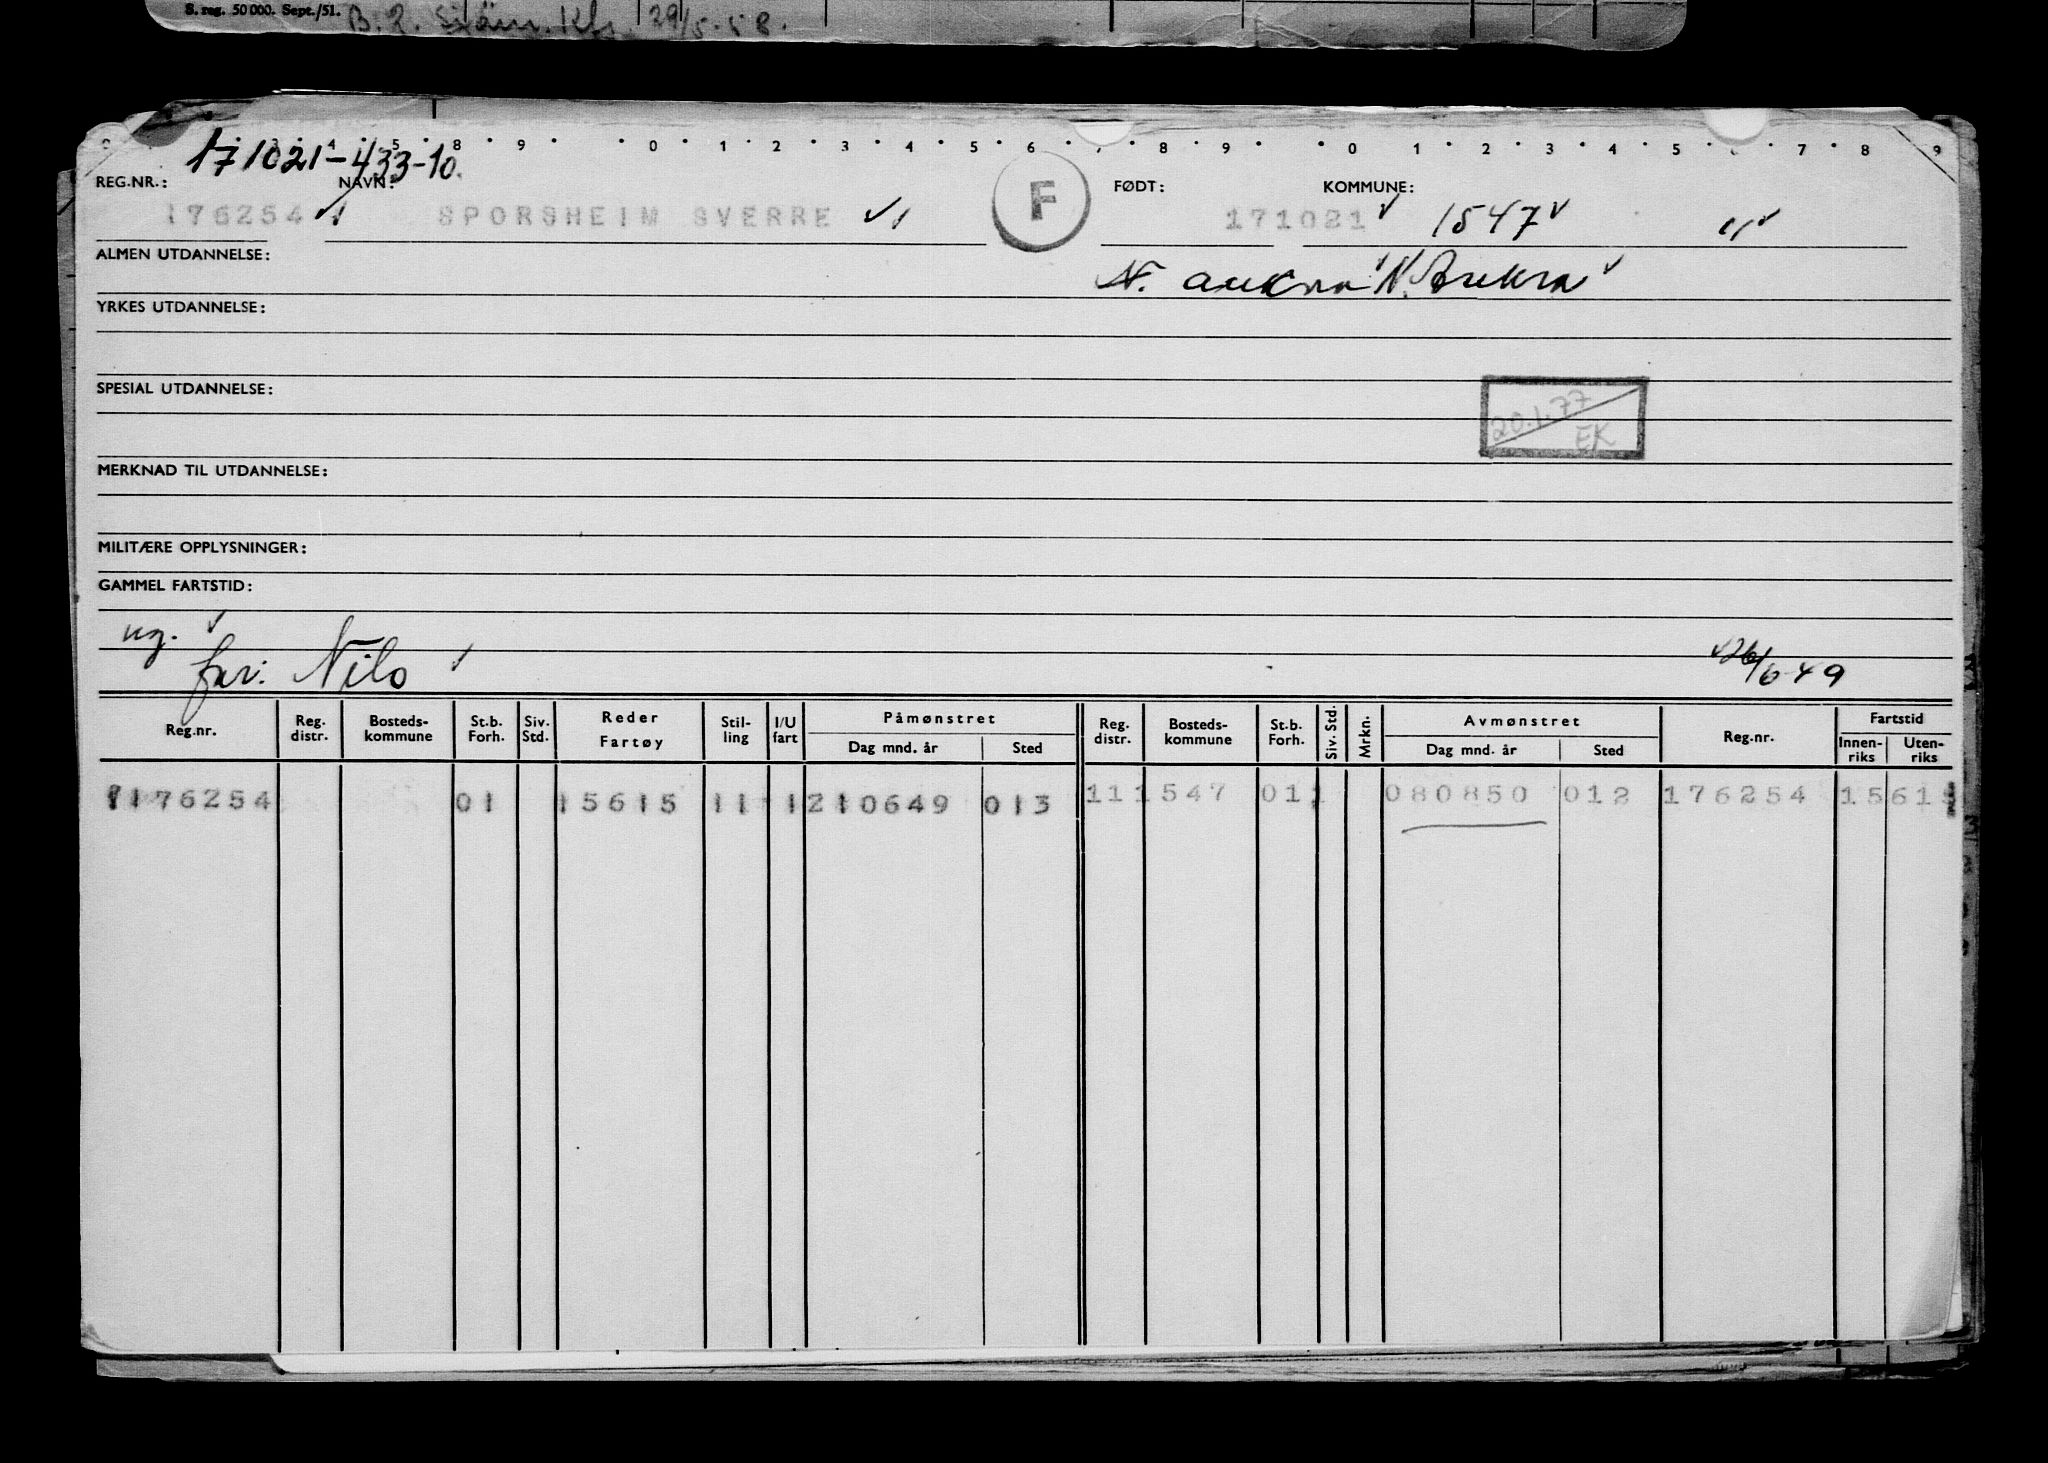 S. reg. 50 000. Sept./51. B. 2. Kfs. 29/5-58.
2 3 4 5 8 9 0 1 2 3 4 5 6 7 8 9 0 1 2 3 4 5 6 7 8 9
171021-433-10.
REG.NR.: NAVN: F FØDT: KOMMUNE:
176254 SPORSHEIM SVERRE 171021 1547 "
ALMEN UTDANNELSE: N. Aukra N. Aukra
YRKES UTDANNELSE:
SPESIAL UTDANNELSE:
20.1.77
EK
MERKNAD TIL UTDANNELSE:
MILITÆRE OPPLYSNINGER:
GAMMEL FARTSTID:
ug.
far: Nils 26/6-49
Reg.nr. Reg. distr. Bosteds-kommune St.b. Forh. Siv. Std. Reder Fartøy Stil-ling I/U fart Påmønstret Dag mnd. år Sted Reg. distr. Bosteds-kommune St.b. Forh. Siv. Std. Mrkn. Avmønstret Dag mnd. år Sted Reg.nr. Fartstid Innen-riks Uten-riks
1176254 01 15615 11 1 210649 013 11 1547 011 080850 012 176254 15615